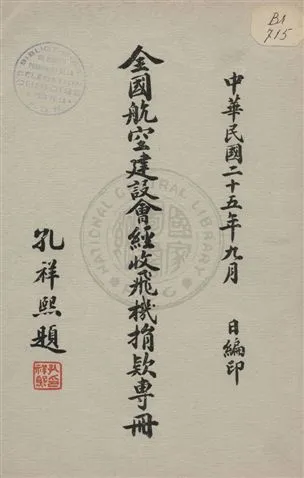 中華民國二十五年九月 日編印
全國航空建設會經收飛機捐款專冊
孔祥熙題
B1
715
NATIONAL CENTRAL LIBRARY